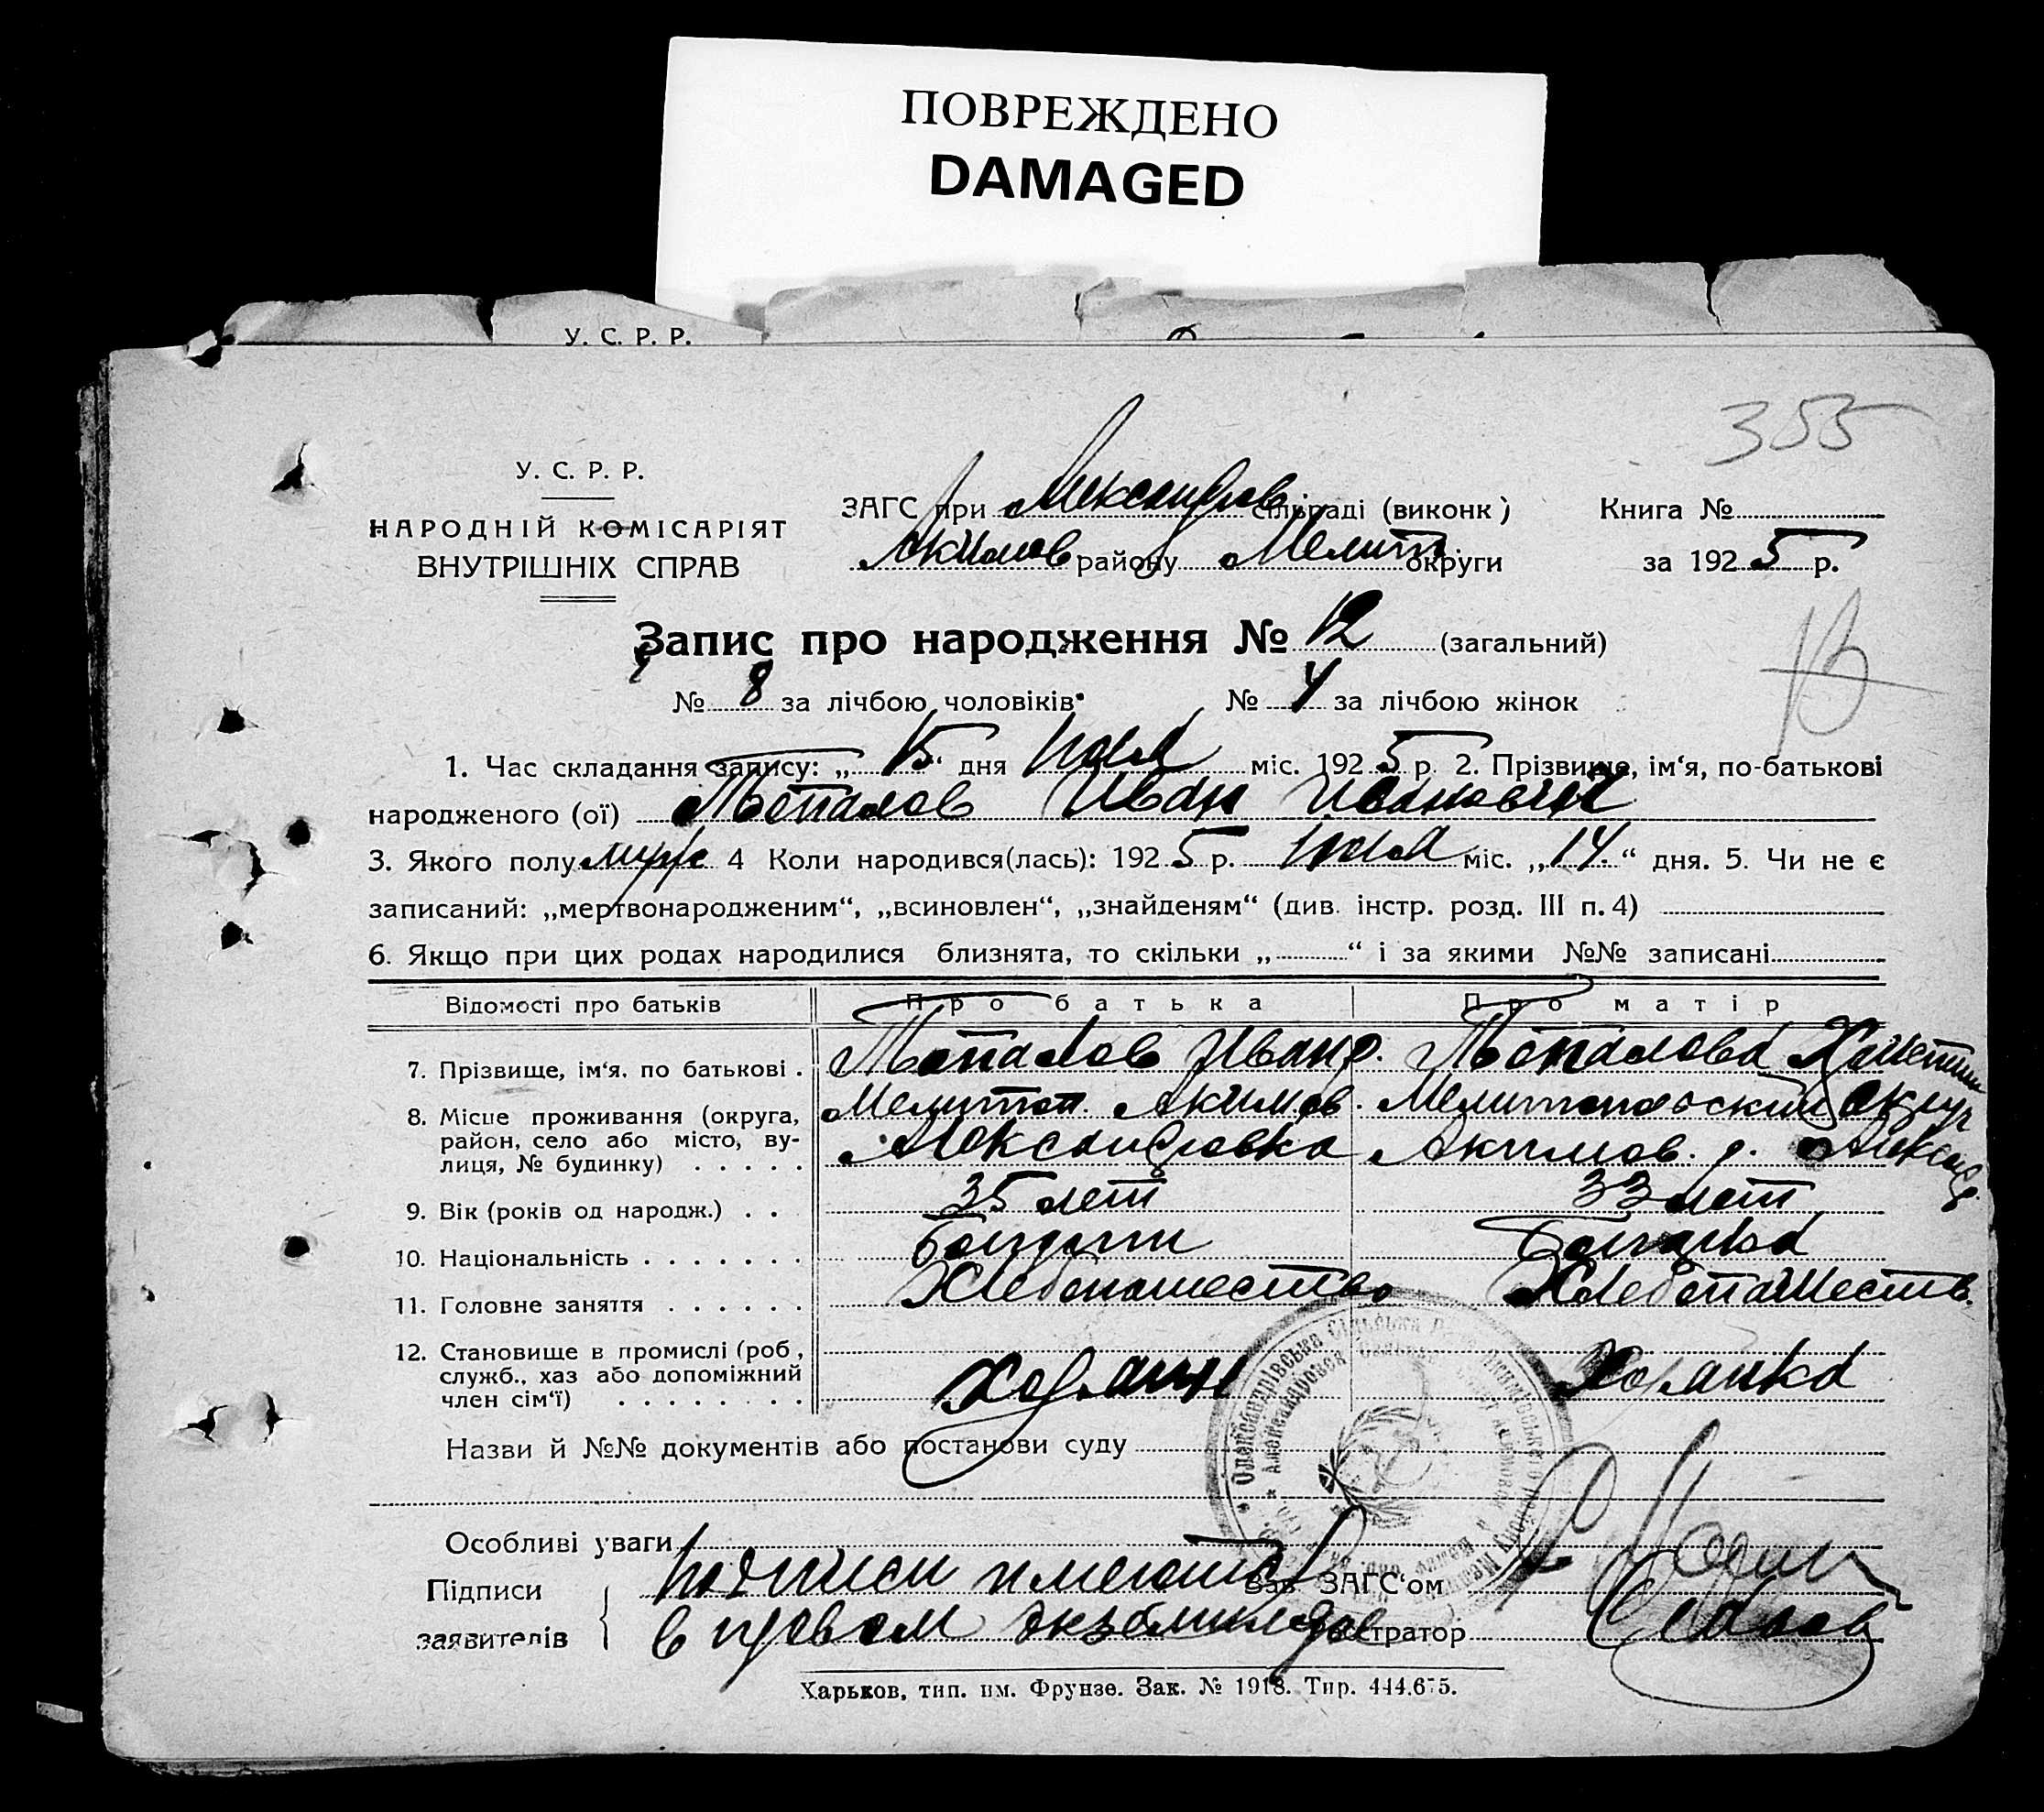 ПОВРЕЖДЕНО
DAMAGED
У. С. Р. Р.
355
У. С. Р. Р.
НАРОДНІЙ КОМІСАРІЯТ
ВНУТРІШНІХ СПРАВ
ЗАГС при Александров сільраді (виконк)
Акимов. району Мелит. округи
Книга №
за 1925 р.
Запис про народження № 12 (загальний)
№ 8 за лічбою чоловіків № 4 за лічбою жінок
1. Час складання запису: „15“ дня мiс. 1925 р. 2. Прізвище, ім‘я, по-батькові
народженого (ої) Топалов Иван Иванович
3. Якого полу муж 4 Коли народився(лась): 1925 р. міс. „14.“ дня. 5. Чи не є
записаний: „мертвонародженим“, „всиновлен“, „знайденям“ (див. інстр. розд. III п. 4)
6. Якщо при цих родах народилися близнята, то скільки „ “ і за якими №№ записані
Відомості про батьків Про батька Про матір
7. Прізвище, ім‘я. по батькові . Топалов Иван Ф. Топалова
8. Місце проживання (округа, Мелитоп. Акимов. Мелитопольский округ
район, село або місто, ву- Александровка Акимов. р. Александ.
лиця, № будинку) . . . . .
9. Вік (років од народж.) . . 35 лет 33 лет
10. Національність . . . . . . . Болгарин Болгарка
11. Головне заняття . . . . . . Хлебопашество Хлебопашеств.
12. Становище в промислі (роб,
служб., хаз або допоміжний Хозяин Хозяйка
член сім‘ї) . . . . . . . .
Назви й №№ документів або постанови суду
Особливі уваги
Підписи Подписи имеются Зав ЗАГС‘ом
заявителів в первом экземпляре Реєстратор
Харьков, тип. им. Фрунзе. Зак. № 1918. Тир. 444.675.